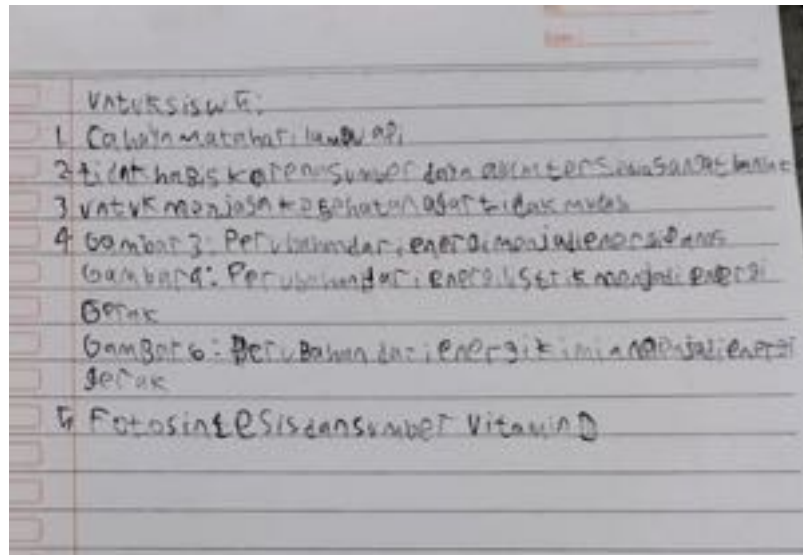 Untuk siswa:
1 Cahaya matahari lampu api
2 tidak habis karena sumber daya alam tersedia sangat banyak
3 untuk menjaga kesehatan agar tidak mudah
4 Gambar 3: Perubahan dari energi menjadi energi panas
Gambar 4: Perubahan dari energi listrik menjadi energi
Gerak
Gambar 6: Perubahan dari energi kimia menjadi energi
gerak
5 Fotosintesis dan sumber vitamin D